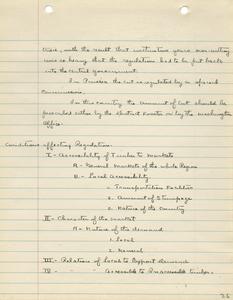 with the result that
was so heavy that the regulations had to be put back
into the central government.
In Russia the cut is regulated by a
In this country the amount of cut should be
prescribed either by the District Forester or by the Washington
Office.
Conditions affecting Regulation:
I - Accessibility of Timber to Markets
A - General Markets of the whole Region
B - Local Accessibility
1. Transportation Facilities
2. Amount of Stumpage
3. Nature of the Country
II - Character of the market
A - Nature of the demand
1. Local
2. General
III - Relation of Local to Export demand
IV - " " Accessible to Inaccessible timber.